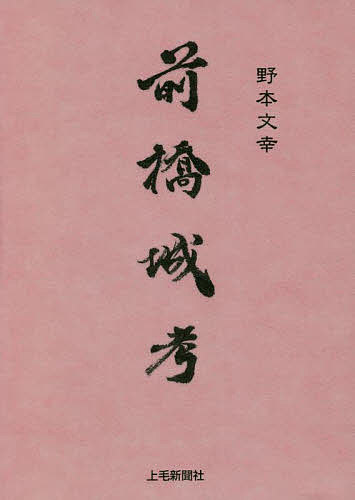 野本文幸
前橋城考
上毛新聞社